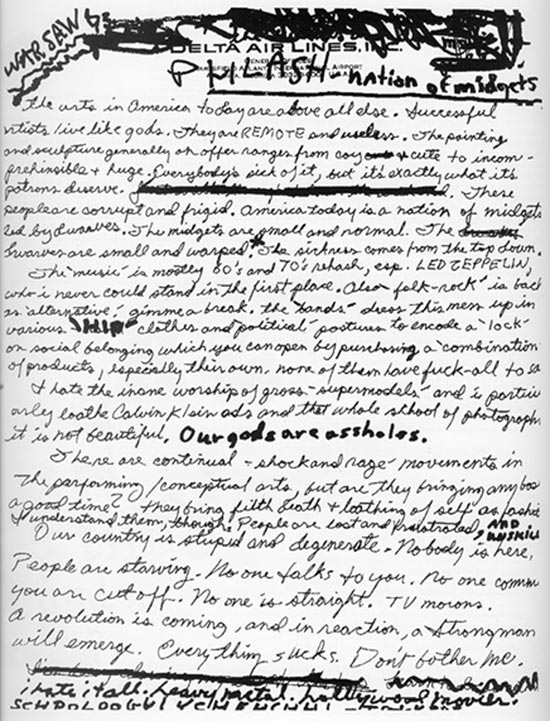 WARSAW
DELTA AIR LINES, INC.
PHLASH - nation of midgets
The arts in America today are above all else. Successful
artists live like gods. They are REMOTE and useless. The painting
and sculpture generally on offer ranges from coy + cute to incom-
prehinsible + huge. Everybody's sick of it, but it's exactly what it's
patrons deserve. These
people are corrupt and frigid. America today is a nation of midgets
led by dwarves. The midgets are small and normal. The
Dwarves are small and warped.* The sickness comes from the top down.
The "music" is mostly 60's and 70's rehash, esp. LED ZEPPELIN,
who i never could stand in the first place. Also "folk-rock" is back
as "alternative" gimme a break. the "bands" dress this mess up in
various "Hip" clothes and "political" postures to encode a "lock"
on social belonging which you can open by purchasing a combination
of products, especially their own. none of them have fuck-all to sa
I hate the inane worship of gross "supermodels" and i particu
arley loathe Calvin Klein ads and that whole school of photograph
it is not beautiful. Our gods are assholes.
There are continual "shock and rage" movements in
the performing/conceptual arts, but are they bringing any bod
a good time? They bring filth death + loathing of self as fashio
I understand them, though. People are lost and frustrated, AND UNSKILL
Our country is stupid and degenerate. Nobody is here,
People are starving. No one talks to you. No one commu
you are cut off. No one is straight. TV morons.
A revolution is coming, and in reaction, a strongman
will emerge. Everything sucks. Don't bother me.
i hate it all. heavy metal. hollywood movies.